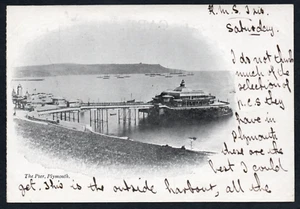 H.M.S. Ino.
Saturday.
I do not think
much of the
selection of
p.c.s they
have in
Plymouth
these are the
best I could
The Pier, Plymouth.
get. This is the outside harbour, all the